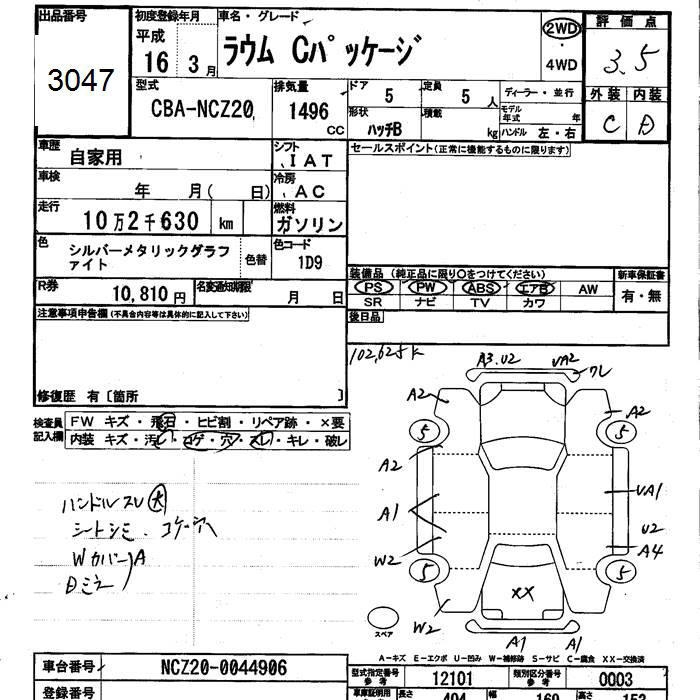 出品番号
3047
初度登録年月
平成
16年 3月
車名・グレード
ラウム Cパッケージ
2WD
・
4WD
評価点
3.5
外装 内装
C D
型式
CBA-NCZ20
排気量
1496 CC
ドア
5
定員
5人
ディーラー・並行
形状
ハッチB
積載
kg
モデル年式 年
ハンドル 左・右
車歴
自家用
シフト
IAT
セールスポイント(正常に機能するものに限ります)
車検
年 月( 日)
冷房
AC
走行
10万2千630 km
燃料
ガソリン
色
シルバーメタリックグラファイト
色替
色コード
1D9
装備品 (純正品に限り○をつけてください)
PS PW ABS エアB AW
SR ナビ TV カワ
新車保証書
有・無
R券
10,810円
名変通知期限
月 日
後日品
注意事項申告欄(不具合内容等は具体的に記入して下さい)
修復歴 有〔箇所 〕
102,625k
検査員記入欄
FW キズ・飛石・ヒビ割・リペア跡・×要
内装 キズ・汚レ・コゲ・穴・スレ・キレ・破レ
ハンドルスレ大
シートシミ、コゲ穴
Wカバー A
Dミラー
A3.U2 UA2
ワレ
A2 A2
5 5
A2
A1 UA1
U2
W2 A4
5 5
XX
W2
A1 A1
スペア
A-キズ E-エクボ U-凹み W-補修跡 S-サビ C-腐食 XX-交換済
車台番号
NCZ20-0044906
型式指定番号
参考
12101
類別区分番号
参考
0003
登録番号
車庫証明用
参考
長さ
404
幅
169
高さ
153